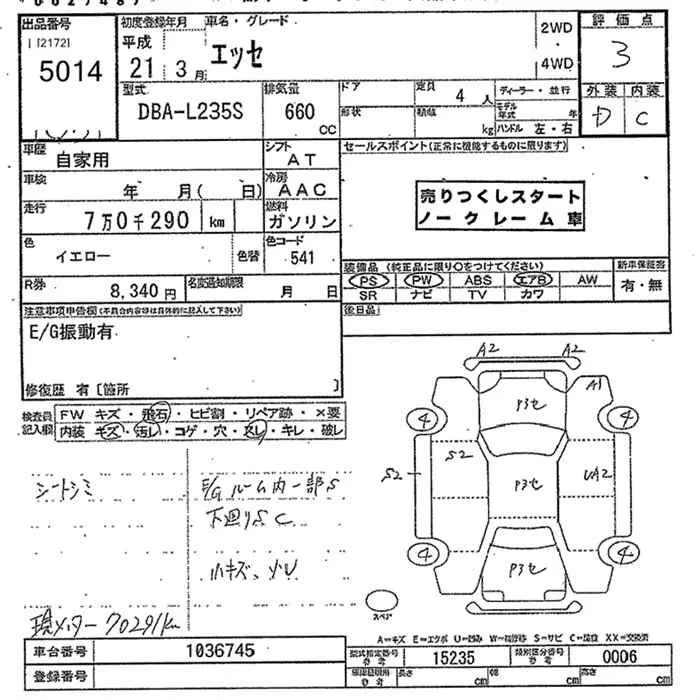 出品番号 初度登録年月 車名・グレード 2WD 評価点
[2172] 平成 エッセ 3
5014 21年 3月 4WD
型式 排気量 ドア 定員 ディーラー・並行 外装 内装
DBA-L235S 660 4人 モデル年式 年 D C
CC 形状 積載 kg ハンドル 左・右
車歴 自家用 シフト AT セールスポイント(正常に機能するものに限ります)
車検 年 月( 日) 冷房 AAC
売りつくしスタート
ノークレーム車
走行 7万0千290 km 燃料 ガソリン
色 イエロー 色替 色コード 541
装備品 (純正品に限り○をつけてください) 新車保証書
PS PW ABS エアB AW 有・無
SR ナビ TV カワ
R券 8,340円 名変通知期限 月 日
後日品
注意事項申告欄(不具合内容等は具体的に記入して下さい)
E/G振動有
修復歴 有 [箇所 ]
検査員記入欄 FW キズ・飛石・ヒビ割・リペア跡・×要
内装 キズ・汚レ・コゲ・穴・ヌレ・キレ・破レ
A2 A2
A1
P3セ
4 4
S2 S2 P3セ UA2
4 4
P3セ
シートシミ E/Gルーム内一部S
下廻りSC
小キズ、小U
現メーター70291km
スペア
A=キズ E=エクボ U=凹み W=補修跡 S=サビ C=腐蝕 XX=交換済
車台番号 1036745 型式指定番号 参考 15235 類別区分番号 参考 0006
登録番号 参考 長さ cm 幅 cm 高さ cm